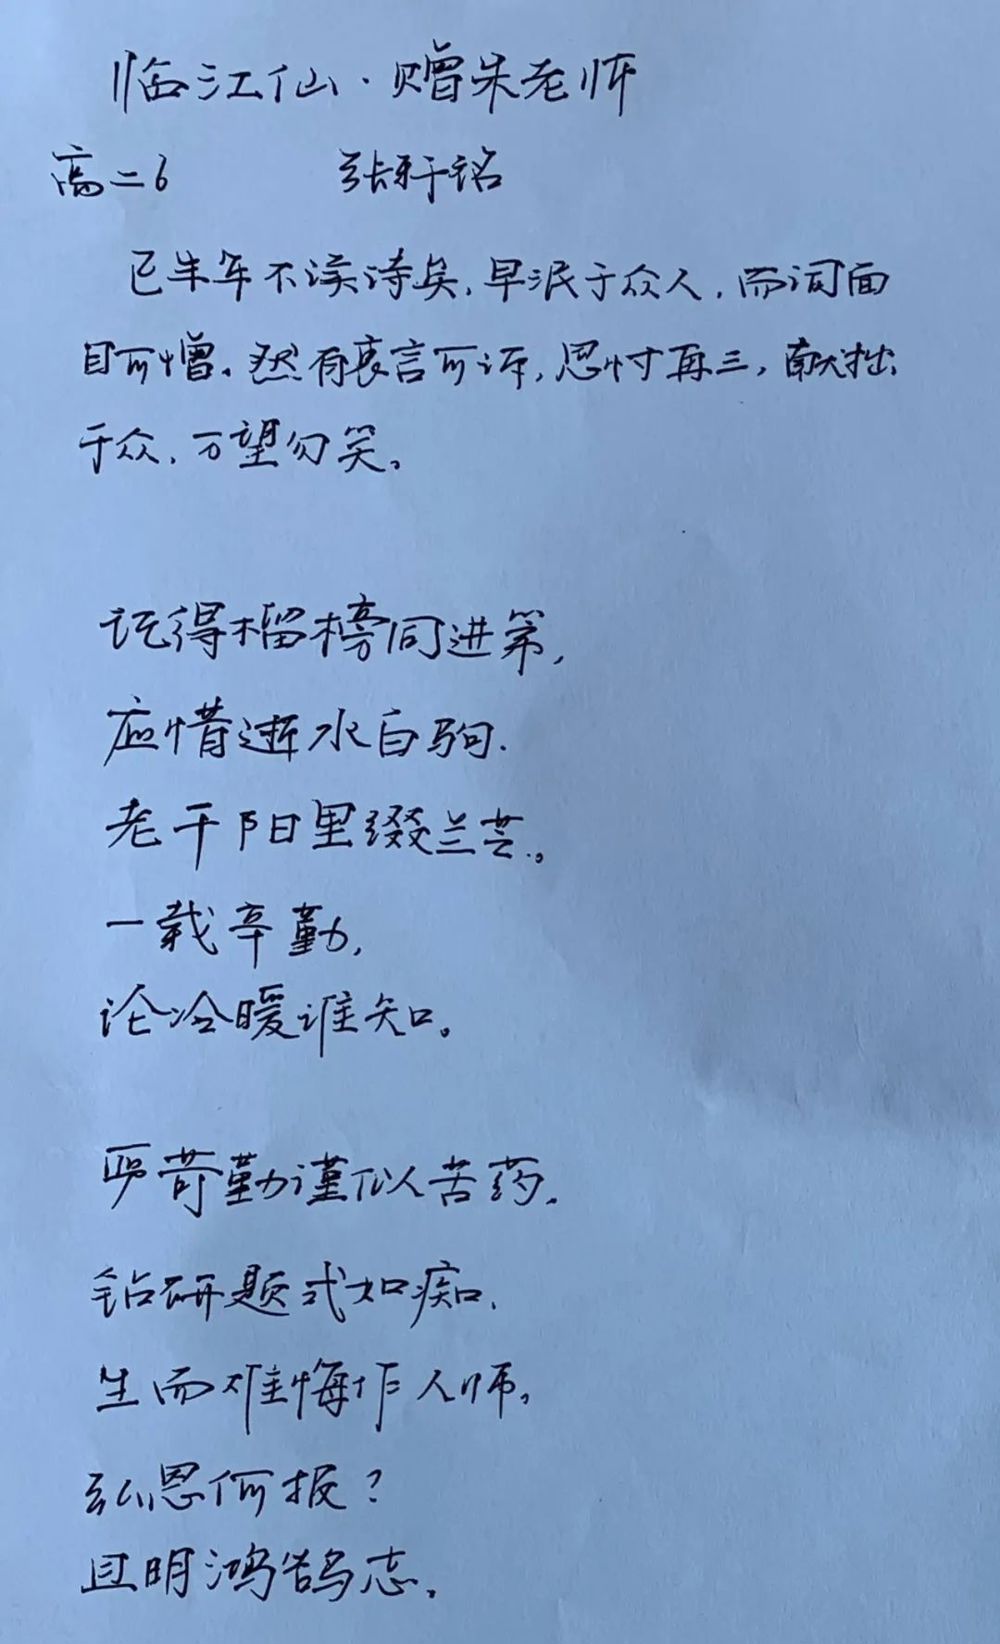 临江仙·赠朱老师
高二6 张轩铭
已半年不读诗矣，早泯于众人，而词面
目可憎。然有衷言可诉，思忖再三，献拙
于众，万望勿笑。
记得榴榜同进第，
应惜逝水白驹.
老干阳里缀兰芸。
一载辛勤，
论冷暖谁知。
严苛勤谨似苦药.
钻研题式如痴.
生而难悔作人师。
弘恩何报？
且明鸿鹄志。